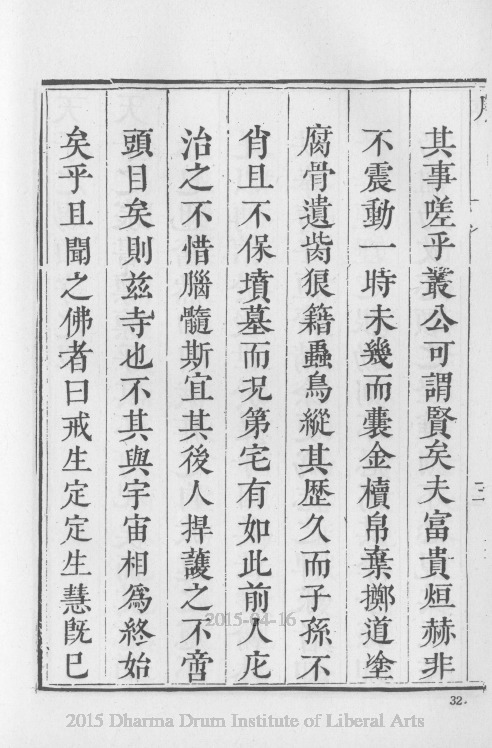 其事嗟乎叢公可謂賢矣夫富貴烜赫非
不震動一時未幾而囊金櫝帛棄擲道塗
腐骨遺胔狠籍蟲鳥縱其歷久而子孫不
肯且不保墳墓而况第宅有如此前人庀
治之不惜腦髓斯宜其後人捍護之不啻
頭目矣則茲寺也不其與宇宙相爲終始
矣乎且聞之佛者曰戒生定定生慧旣巳
三
32
2015-04-16
2015 Dharma Drum Institute of Liberal Arts